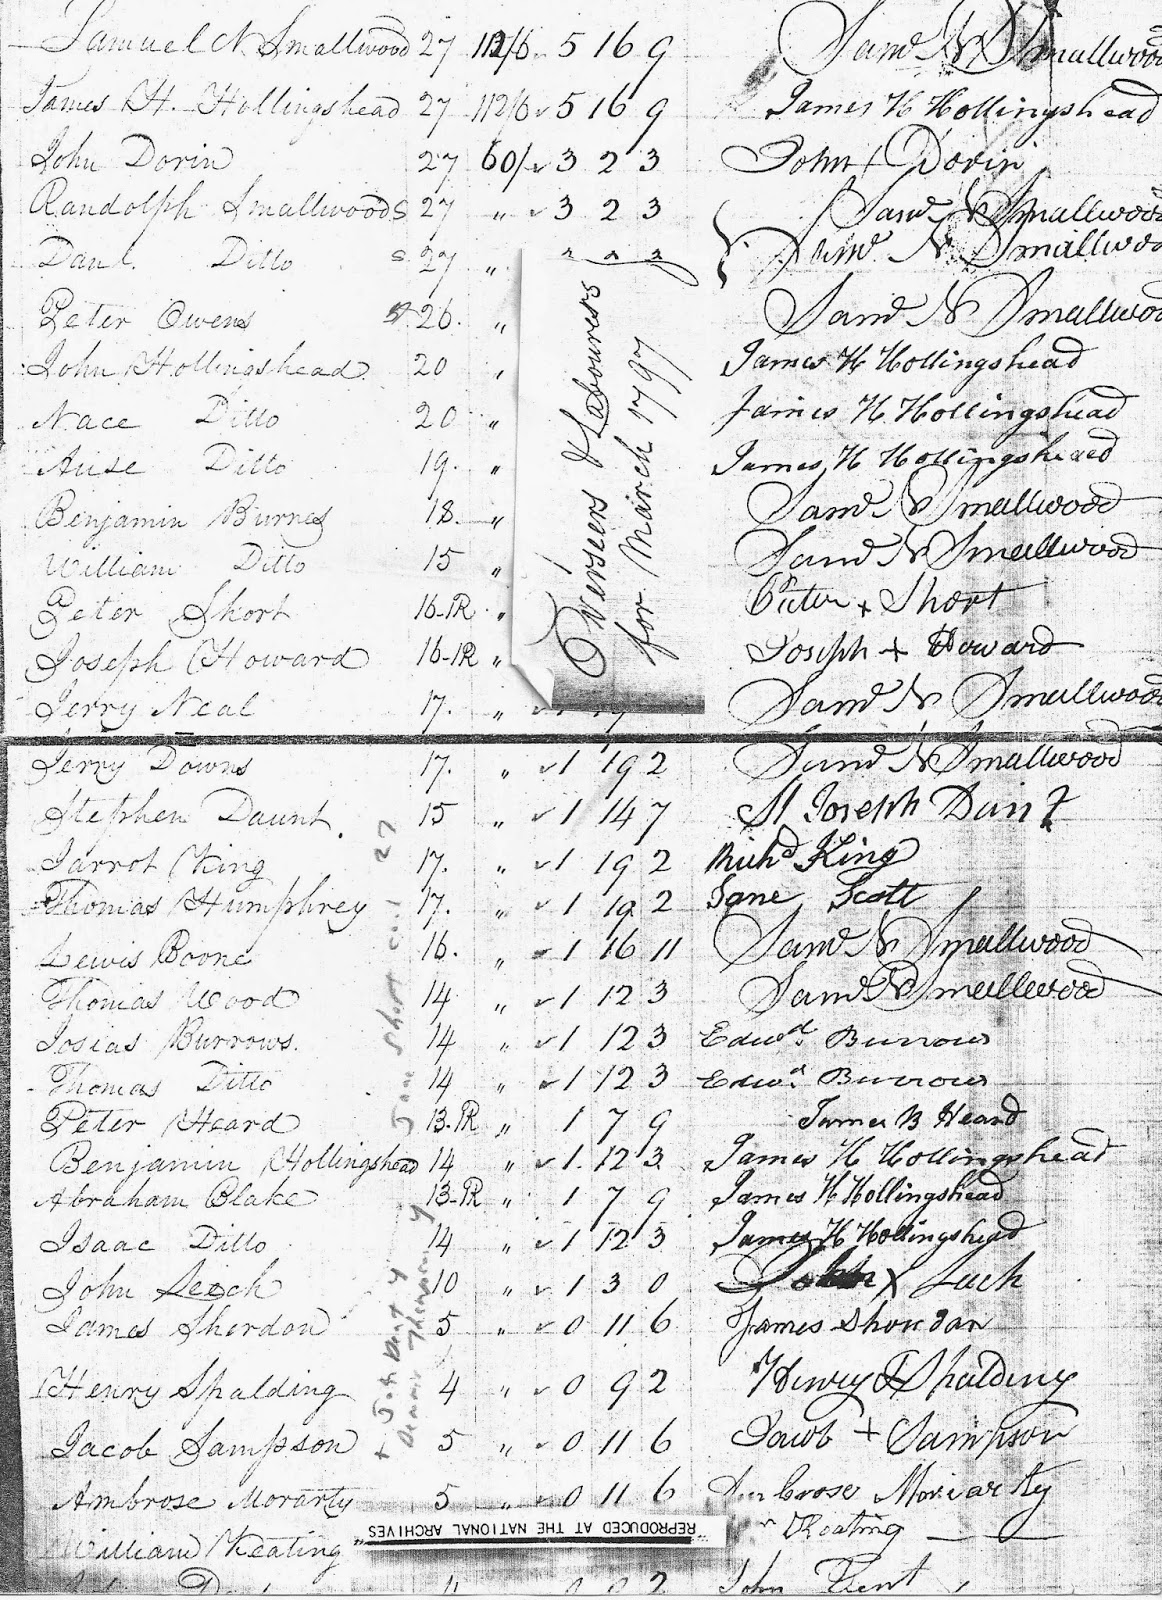 Samuel N. Smallwood 27 112/6 5 16 9 Sam N Smallwood
James H. Hollingshead 27 112/6 5 16 9 James H Hollingshead
John Dorin 27 60/ 3 2 3 John + Dorin
Randolph Smallwoods 27 " 3 2 3 Sam N Smallwood
Danl. Ditto s 27 " Sam N Smallwood
Peter Owens 26. " Sam N Smallwood
John Hollingshead 20 " James H Hollingshead
Nace Ditto 20 " James H Hollingshead
Anse Ditto 19. " James H Hollingshead
Benjamin Burnes 18 " Sam N Smallwood
William Ditto 15 " Sam N Smallwood
Peter Short 16-PR " Peter + Short
Joseph Howard 16-PR " Joseph + Howard
Jerry Neal 17. " Sam N Smallwood
Overseers & Labourers
for March 1797
Jerry Downs 17. " 1 19 2 Sam N Smallwood
Stephen Daunt. 15 " 1 14 7 St Joseph Dant
Jarrot King 17. " 1 19 2 Richd King
Thomas Humphrey 17. " 1 19 2 Jane Scott
Lewis Boone 16. " 1 16 11 Sam N Smallwood
Thomas Wood 14 " 1 12 3 Sam N Smallwood
Josias Burrows. 14 " 1 12 3 Edwd. Burrows
Thomas Ditto 14 " 1 12 3 Edwd. Burrows
Peter Heard 13.PR " 1 7 9 James B Heard
Benjamin Hollingshead 14 " 1. 12 3 James H Hollingshead
Abraham Blake 13-PR " 1 7 9 James H Hollingshead
Isaac Ditto 14 " 1 12 3 James H Hollingshead
John Leech 10 " 1 3 0 John X Leech
James Sherdon 5 " 0 11 6 James Sherdan
Henry Spalding 4 " 0 9 2 Henry Spalding
Jacob Sampson 5 " 0 11 6 Jacob + Sampson
Ambrose Morarty 5 " 0 11 6 Ambrose Moriarty
William Keating Keating
REPRODUCED AT THE NATIONAL ARCHIVES
2 John Dent